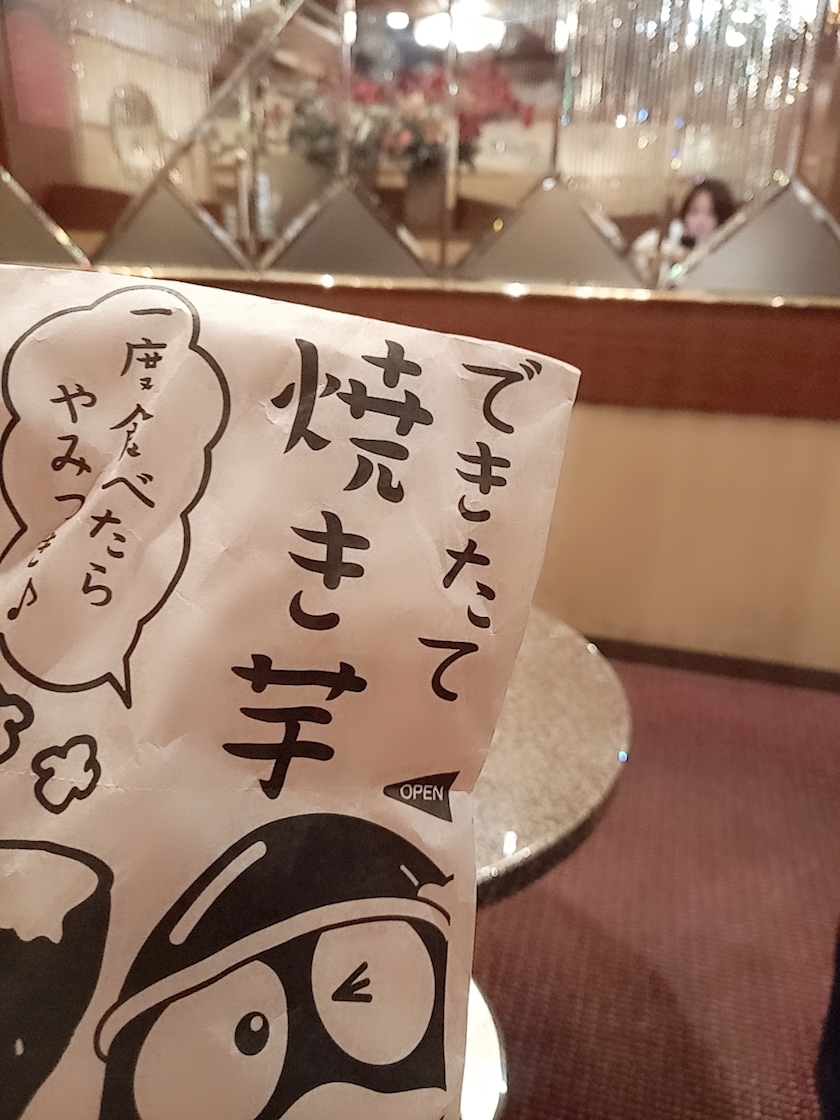 できたて
焼き芋
一度食べたら
やみつき♪
OPEN